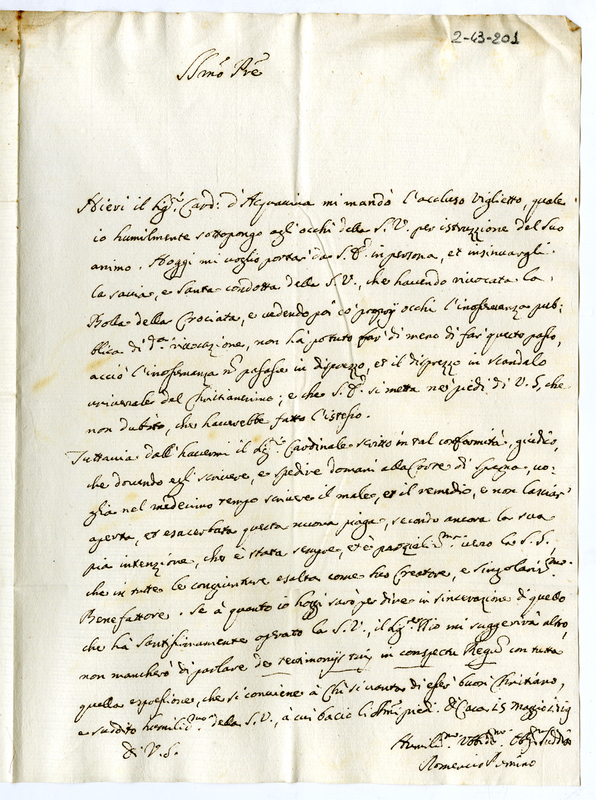 2-43-201
SSmo Pre
Hieri il Sigr. Card: d'Acquaviva mi mandò l'accluso Viglietto, quale
io humilmente sottopongo agli occhi della S. V. per istruzione del Suo
animo. Hoggi mi voglio portar da S. Em. in persona, et insinuargli
la savia, e Santa condotta della S. V., che havendo rivocata la
Bolla della Crociata, e vedendo poi co' proprij occhi l'inosservanza pub=
blica di da. rivocazione, non hà potuto far di meno di far questo passo,
acciò l'inosservanza n. passasse in disprezzo, et il disprezzo in scandalo
universale del Christianesimo; e che S. Em. si metta ne' piedi di V. S. che
non dubito, che haverebbe fatto l'istesso.
Tuttavia dall'havermi il Sigr. Cardinale scritto in tal conformità, giudico,
che dovendo egli scrivere, e spedire domani alla Corte di Spagna, vo=
glia nel medesimo tempo scrivere il male, et il remedio, e non lasciar
aperta, et esacerbata questa nuova piaga, secondo ancora la sua
pia intenzione, che è stata sempre, et è parzialma. verso la S. S.,
che in tutte le congiunture esalta come suo Creatore, e Singolarissmo.
Benefattore. Se à quanto io hoggi sarò per dire in sincerazione di quello
che hà Santissimamente operato la S. V., il Sigr. Iddio mi suggerirà altro,
non mancherò di parlare de testimonijs tuis in conspectu Regum con tutta
quella espressione, che si conviene à Chi si vanta di esser buon Christiano,
e suddito humilissmo. della S. V., à cui bacio li SSmi. piedi. Di Casa 25 Maggio
Di V. S.
Humilmo. Obbmo. Suddito